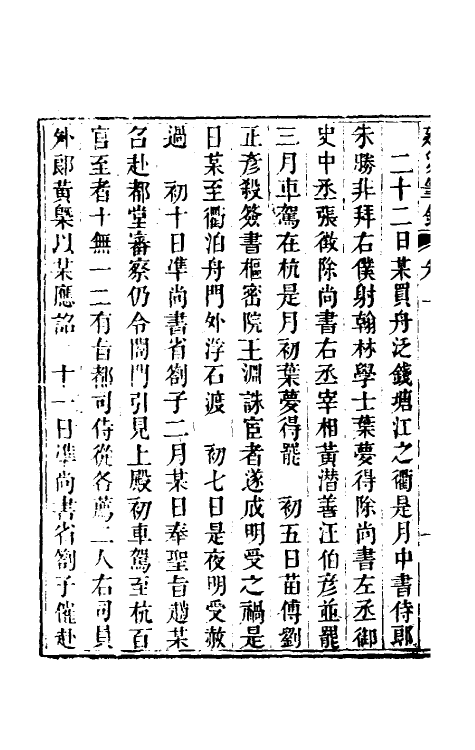 建炎筆錄 卷一
二十二日某買舟泛錢塘江之衢是月中書侍郎
朱勝非拜右僕射翰林學士葉夢得除尚書左丞御
史中丞張澂除尚書右丞宰相黃潛善汪伯彥並罷
三月車駕在杭是月初葉夢得罷 初五日苗傅劉
正彥殺簽書樞密院王淵誅宦者遂成明受之禍是
日某至衢泊舟門外浮石渡 初七日是夜明受赦
過 初十日準尚書省劄子二月某日奉聖旨趙某
召赴都堂審察仍令閤門引見上殿初車駕至杭百
官至者十無一二有旨都司侍從各薦二人右司員
外郎黃槩以某應詔 十一日準尚書省劄子催赴